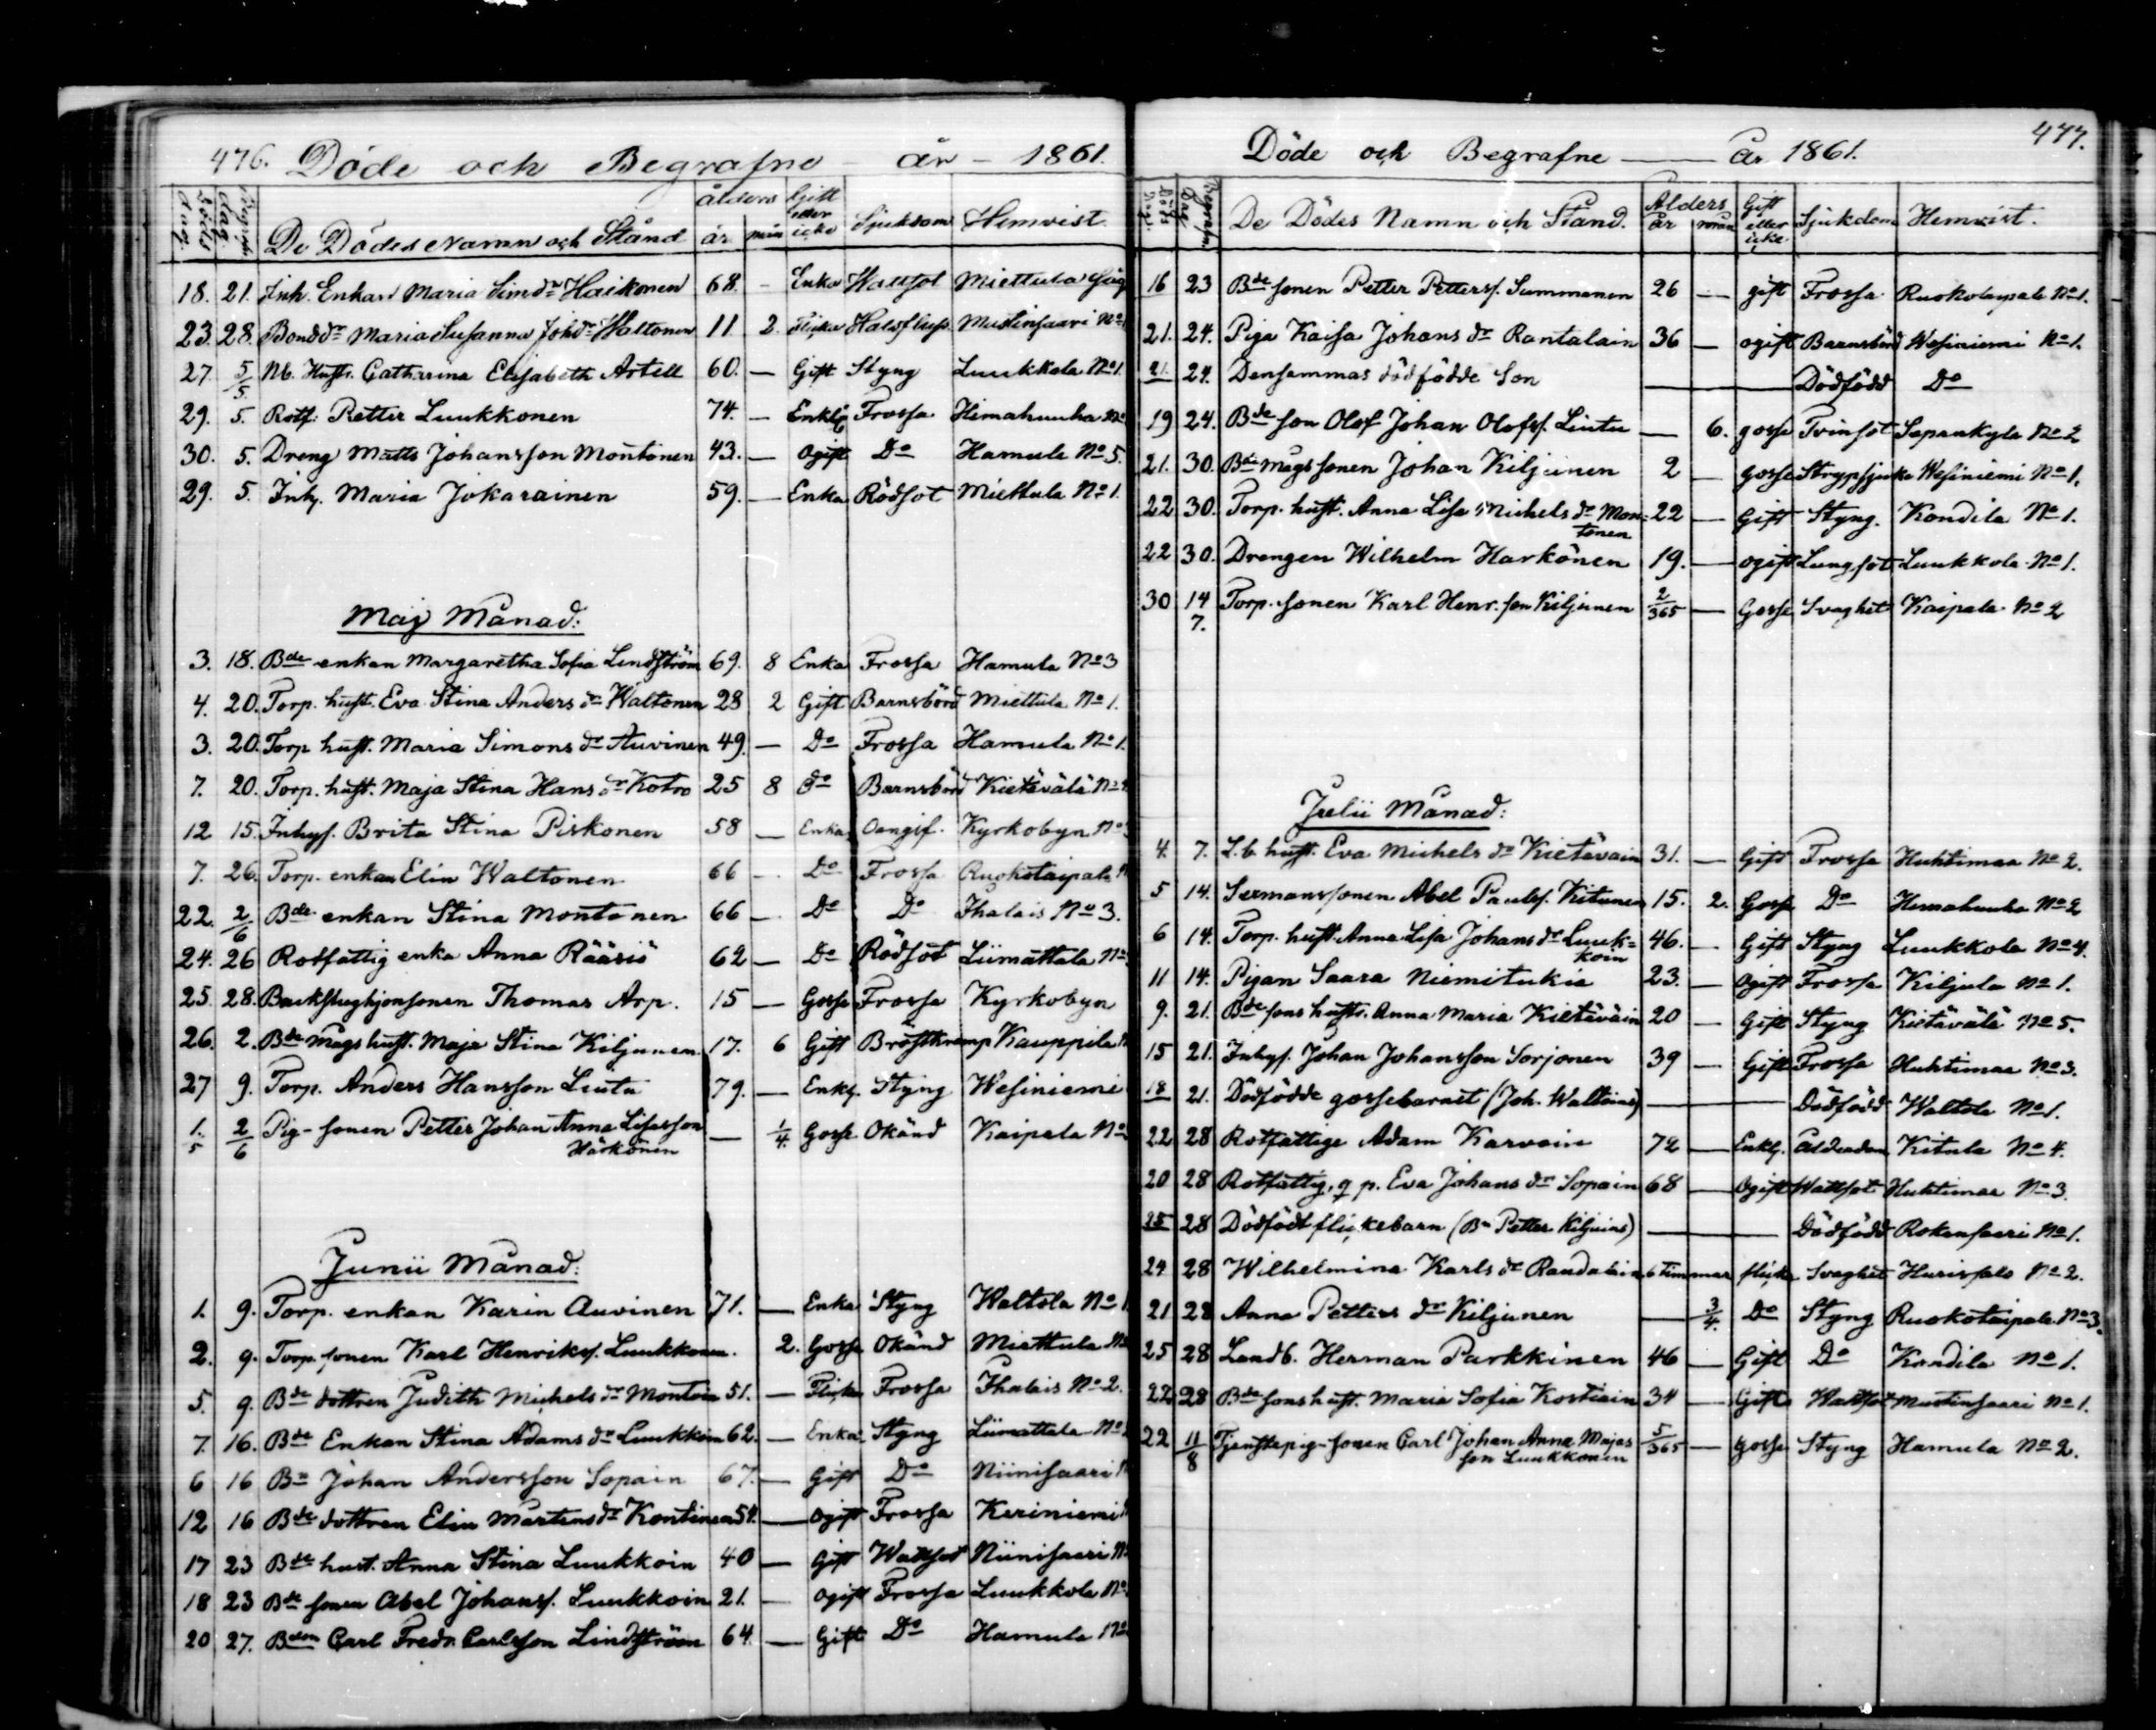 476. Döde och Begrafne - år - 1861.
Döds dag. Begrafn. dag De Dödes Namn och Stånd ålders år mån Gift eller icke Sjukdom Hemvist
18. 21. Inh. Enkan Maria Simsdr Haikonen 68. - Enka Wattsot Miettula Såg
23. 28. Bondedr Maria Susanna Johdr Waltonen 11. 2. Flicka Halsfluss Mustinsaari No
27. 5/5. Nb. Hustr. Catharina Elisabeth Artell 60. — Gift Styng Luukkola No 1.
29. 5. Rotf. Petter Luukkonen 74. — Enkl. Frossa Himahuuha No
30. 5. Dreng Matts Johansson Montonen 43. — Ogift Do Hamula No 5.
29. 5. Inhy. Maria Jokarainen 59. — Enka Rödsot Miettula No 1.
Maj Månad:
3. 18. Bde enkan Margaretha Sofia Lindström 69. 8 Enka Frossa Hamula No 3
4. 20. Torp. hust. Eva Stina Anders dr Waltonen 28 2 Gift Barnsbörd Miettula No 1.
3. 20. Torp hust. Maria Simons dr Auvinen 49. — Do Frossa Hamula No 1.
7. 20. Torp. hust. Maja Stina Hans dr Kotro 25 8 do Barnsbörd Kietävälä No
12 15. Inhys. Brita Stina Piskonen 58 — Enka Oangif. Kyrkobyn No
7. 26. Torp. enkan Elin Waltonen 66 — Do Frossa Ruokotaipale
22. 2/6 Bde enkan Stina Montonen 66 — Do Do Ihalais No 3.
24. 26 Rotfattig enka Anna Rääsiö 62 — Do Rödsot Liimattala No
25. 28. Backstughjonsonen Thomas Arp. 15 — Gosse Frossa Kyrkobyn
26. 2. Bde Mågs hust. Maja Stina Kiljunen 17. 6 Gift Bröstkramp Kauppila
27 9. Torp. Anders Hansson Lintu 79. — Enkl. Styng Wesiniemi
1./5 2/6 Pig-sonen Petter Johan Anna Lisasson Härkönen — 1/4. Gosse Okänd Kaipala No
Junii Månad:
1. 9. Torp. enkan Karin Auvinen 71. — Enka Styng Waltola No 1
2. 9. Torp. sonen Karl Henrikss. Luukkonen. 2. Gosse Okänd Miettula No
5. 9. Bde dottren Judith Michels dr Montoin 51. — Flicka Frossa Ihalais No 2.
7. 16. Bde Enkan Stina Adams dr Luukkoin 62. — Enka Styng Liimattala No
6 16 Bn Johan Andersson Sopain 67. — Gift Do Niinisaari
12 16 Bde dottren Elin Martens dr Kontinen 54. — ogift Frossa Keriniemi
17 23 Bde hust. Anna Stina Luukkoin 40 — Gift Wattsot Niinisaari No
18 23 Bde sonen Abel Johanss. Luukkoin 21. — ogift Frossa Luukkola No
20 27. Bden Carl Fredr. Carlsson Lindström 64. — Gift Do Hamula No
Döde och Begrafne —— år 1861. 477.
Döds dag. Begrafn. dag De Dödes Namn och Stånd. Ålders år mån Gift eller icke Sjukdom Hemvist.
16 23 Bde sonen Petter Petterss. Summanen 26 — gift Frossa Ruokotaipale No 1.
21. 24. Piga Kaisa Johans dr Rantalain 36 — ogift Barnsbörd Wesiniemi No 1.
21. 24. Densammas dödfödde Son —— Dödfödd Do
19 24. Bde son Olof Johan Olofss. Lintu — 6. gosse Tvinsot Saparakylä No 2
21. 30. Bde mågssonen Johan Kiljuinen 2 — gosse Strypsjuka Wesiniemi No 1.
22 30. Torp. hust. Anna Lisa Michels dr Mon=tonen 22 — Gift Styng. Kondila No 1.
22 30. Drengen Wilhelm Harkönen 19. — ogift Lungsot Luukkola No 1.
30 14/7. Torp. sonen Karl Henr. son Kiljunen 2/365 — Gosse Svaghet Kaipala No 2
Julii Månad:
4. 7. L.b. hust. Eva Michels dr Kietäväin 31. — Gift Frossa Huhtimaa No 2.
5 14. Sexmanssonen Abel Paulss. Kitunen 15. 2. Gosse Do Himahuuha No 2
6 14. Torp. hust. Anna Lisa Johans dr Luuk=koin 46. — Gift Styng Luukkola No 4.
11 14. Pigan Saara Niemitukia 23. — ogift Frossa Kiljula No 1.
9. 21. Bde sons hustr. Anna Maria Kietäväin 20 — Gift Styng Kietävälä No 5.
15 21. Inhys. Johan Johansson Sorjonen 39 — Gift Frossa Huhtimaa No 3.
18 21. Dödfödde gossebarnet (Joh. Waltoins) —— Dödfödd Waltola No 1.
22 28 Rotfattige Adam Karvoin 72 — Enkl. Ålderdom Kitula No 4.
20 28 Rotfattig. q p. Eva Johans dr Sopain 68 — Ogift Wattsot Huhtimaa No 3.
25 28 Dödfödt flickebarn (Bn Petter Kiljuins) —— Dödfödd Rokansaari No 1.
24 28 Wilhelmina Karls dr Randalain 6 timmar flicka Svaghet Hurispalo No 2.
21 28 Anna Petters dr Kiljunen — 3/4. Do Styng Ruokotaipale No 3.
25 28 Landb. Herman Parkkinen 46 — Gift Do Kondila No 1.
22 28 Bde sons hust. Maria Sofia Kostiain 34 — Gift Wattsot Mustinsaari No 1.
22 11/8 Tjenstepig-sonen Carl Johan Anna Majas son Luukkonen 5/365 — gosse Styng Hamula No 2.